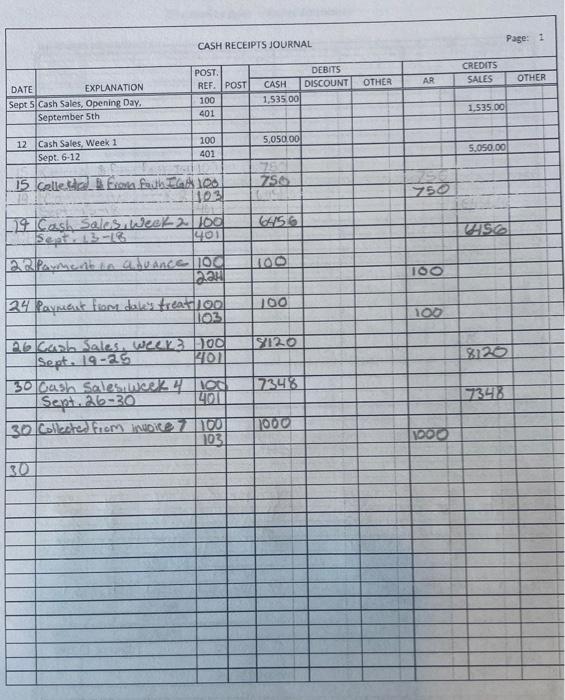 CASH RECEIPTS JOURNAL Page: 1
POST. DEBITS CREDITS
DATE EXPLANATION REF. POST CASH DISCOUNT OTHER AR SALES OTHER
Sept 5 Cash Sales, Opening Day, 100 1,535.00
September 5th 401 1,535.00
12 Cash Sales, Week 1 100 5,050.00
Sept. 6-12 401 5,050.00
15 Collected From Faith 100 750
103 750
19 Cash Sales, Week 2 100 6456
Sept. 13-18 401 6456
22 Payment in advance 100 100
224 100
24 Payment from dale's treat 100 100
103 100
26 Cash Sales, week 3 100 8120
Sept. 19-25 401 8120
30 Cash Sales, week 4 100 7348
Sept. 26-30 401 7348
30 Collected from invoice 7 100 1000
103 1000
30